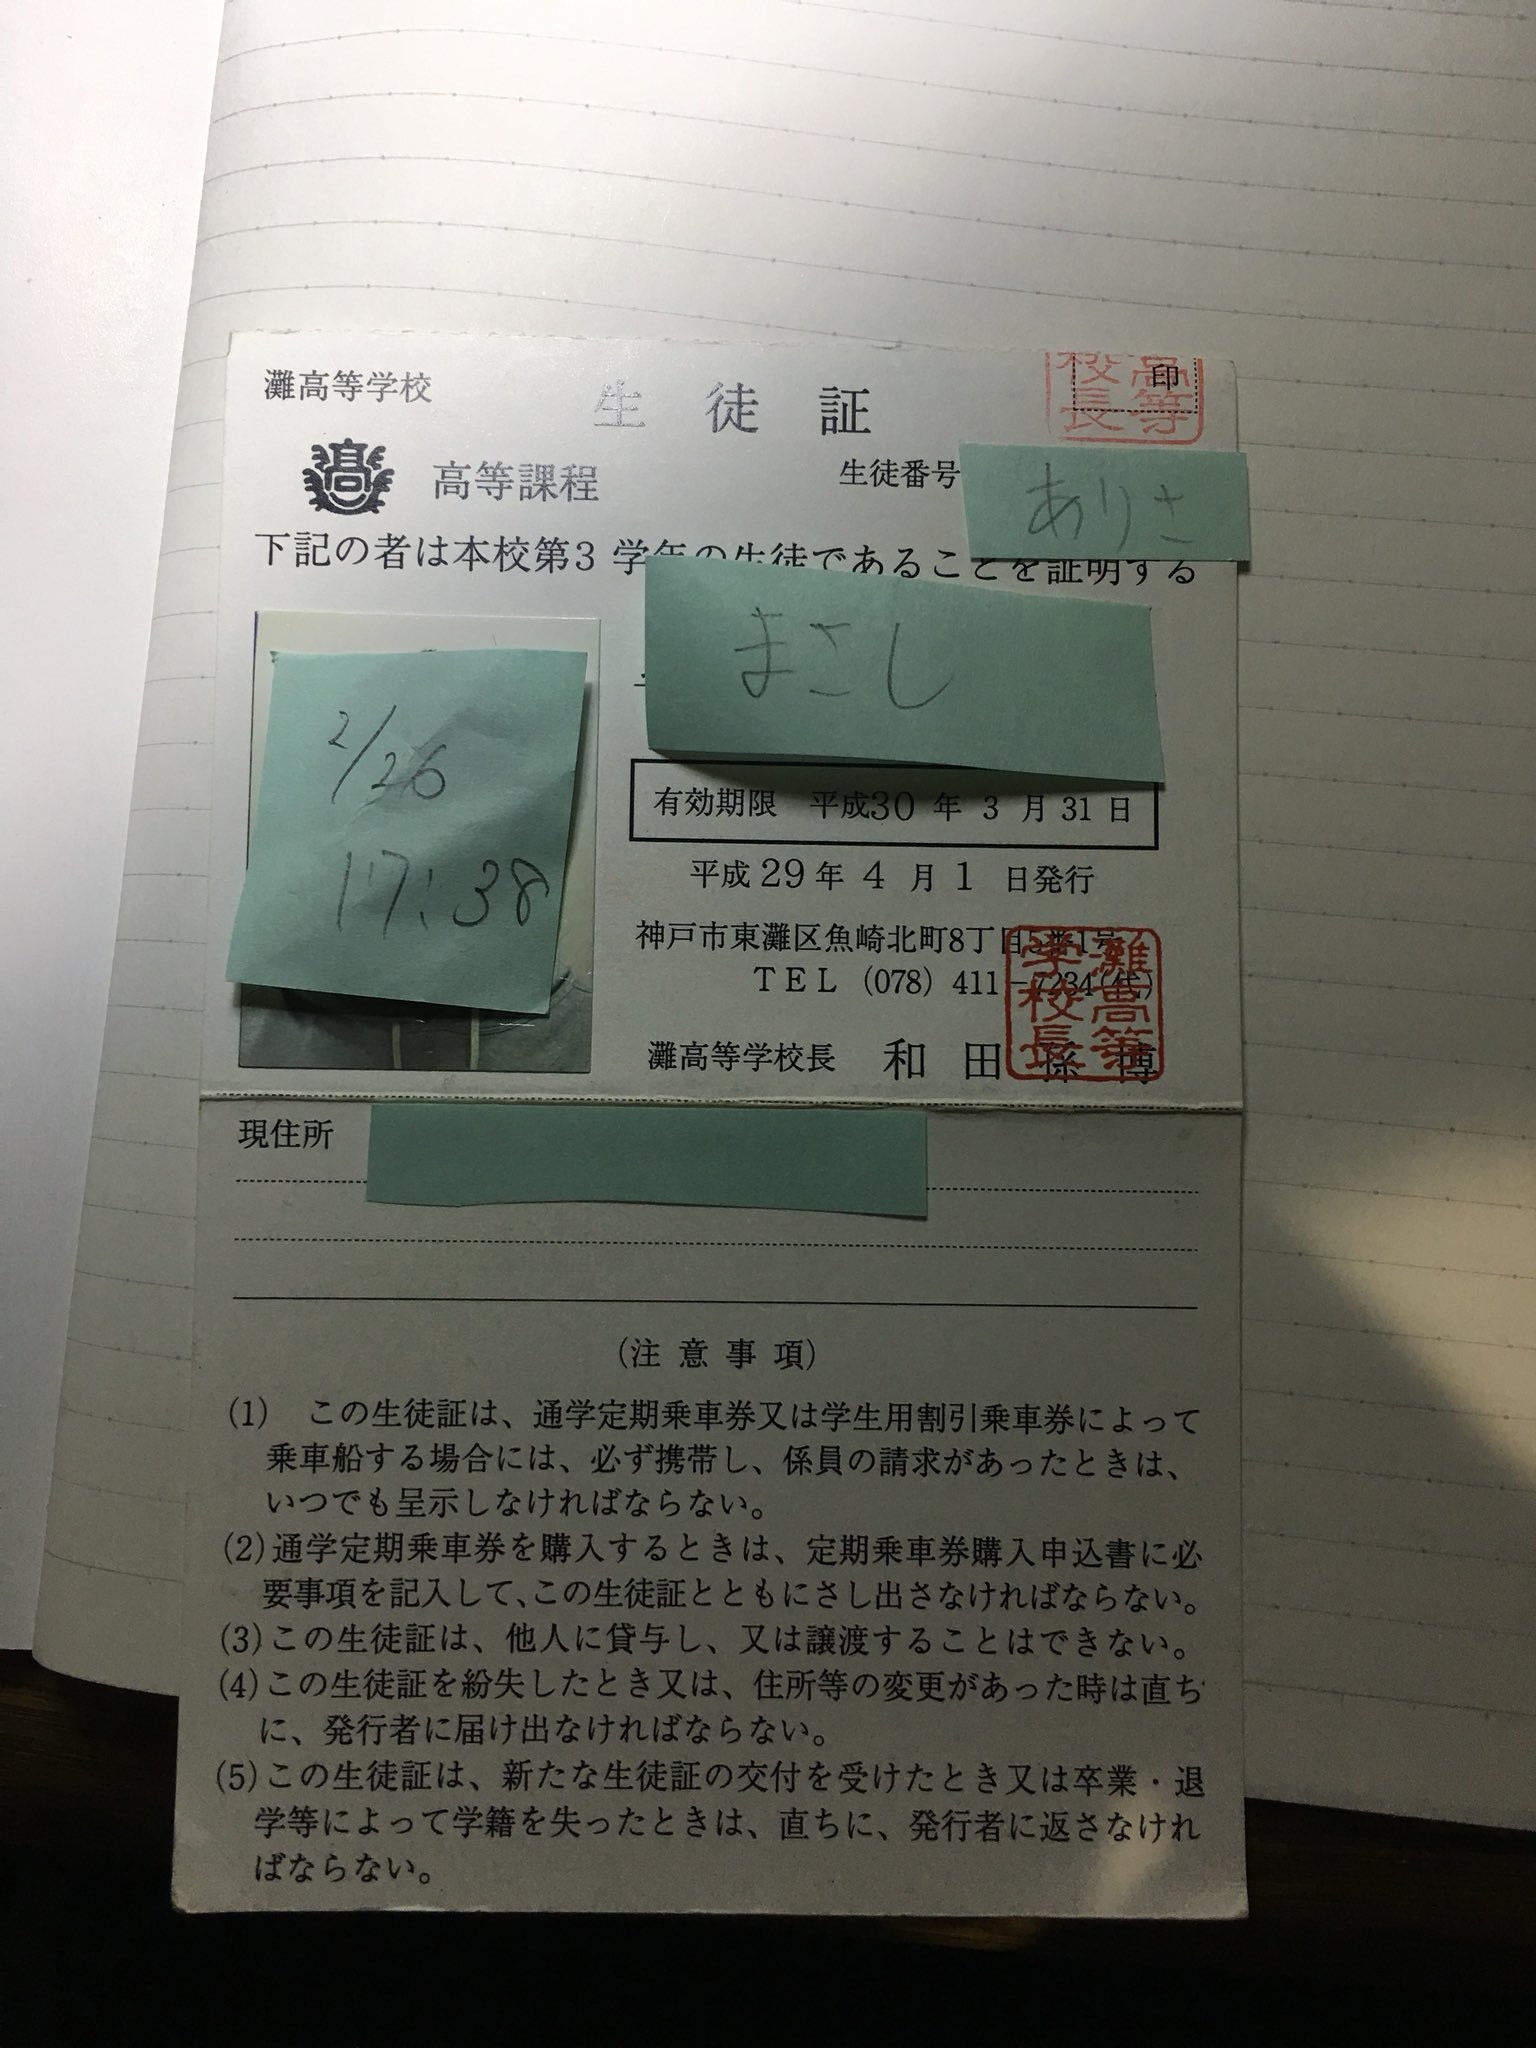 灘高等学校
生徒証
印
高等
校長
髙
高等課程
生徒番号
ありさ
下記の者は本校第3学年の生徒であることを証明する
まさし
2/26
17:38
有効期限 平成30年3月31日
平成29年4月1日発行
神戸市東灘区魚崎北町8丁目5番1号
TEL (078) 411-7234(代)
灘高等学校長 和田孫博
灘高等
学校長
現住所
(注意事項)
(1) この生徒証は、通学定期乗車券又は学生用割引乗車券によって
乗車船する場合には、必ず携帯し、係員の請求があったときは、
いつでも呈示しなければならない。
(2)通学定期乗車券を購入するときは、定期乗車券購入申込書に必
要事項を記入して、この生徒証とともにさし出さなければならない。
(3)この生徒証は、他人に貸与し、又は譲渡することはできない。
(4)この生徒証を紛失したとき又は、住所等の変更があった時は直ち
に、発行者に届け出なければならない。
(5)この生徒証は、新たな生徒証の交付を受けたとき又は卒業・退
学等によって学籍を失ったときは、直ちに、発行者に返さなけれ
ばならない。